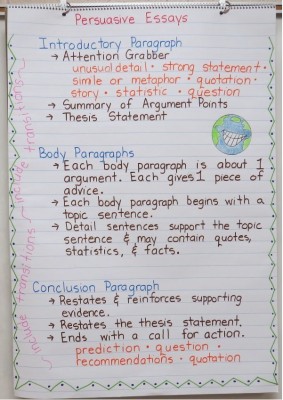 Persuasive Essays
Introductory Paragraph
→ Attention Grabber
unusual detail • strong statement •
simile or metaphor • quotation •
story • statistic • question
→ Summary of Argument Points
→ Thesis Statement
Body Paragraphs
→ Each body paragraph is about 1
argument. Each gives 1 piece of
advice.
→ Each body paragraph begins with a
topic sentence.
→ Detail sentences support the topic
sentence & may contain quotes,
statistics, & facts.
Conclusion Paragraph
→ Restates & reinforces supporting
evidence.
→ Restates the thesis statement.
→ Ends with a call for action.
prediction • question •
recommendations • quotation
include transitions
include transitions